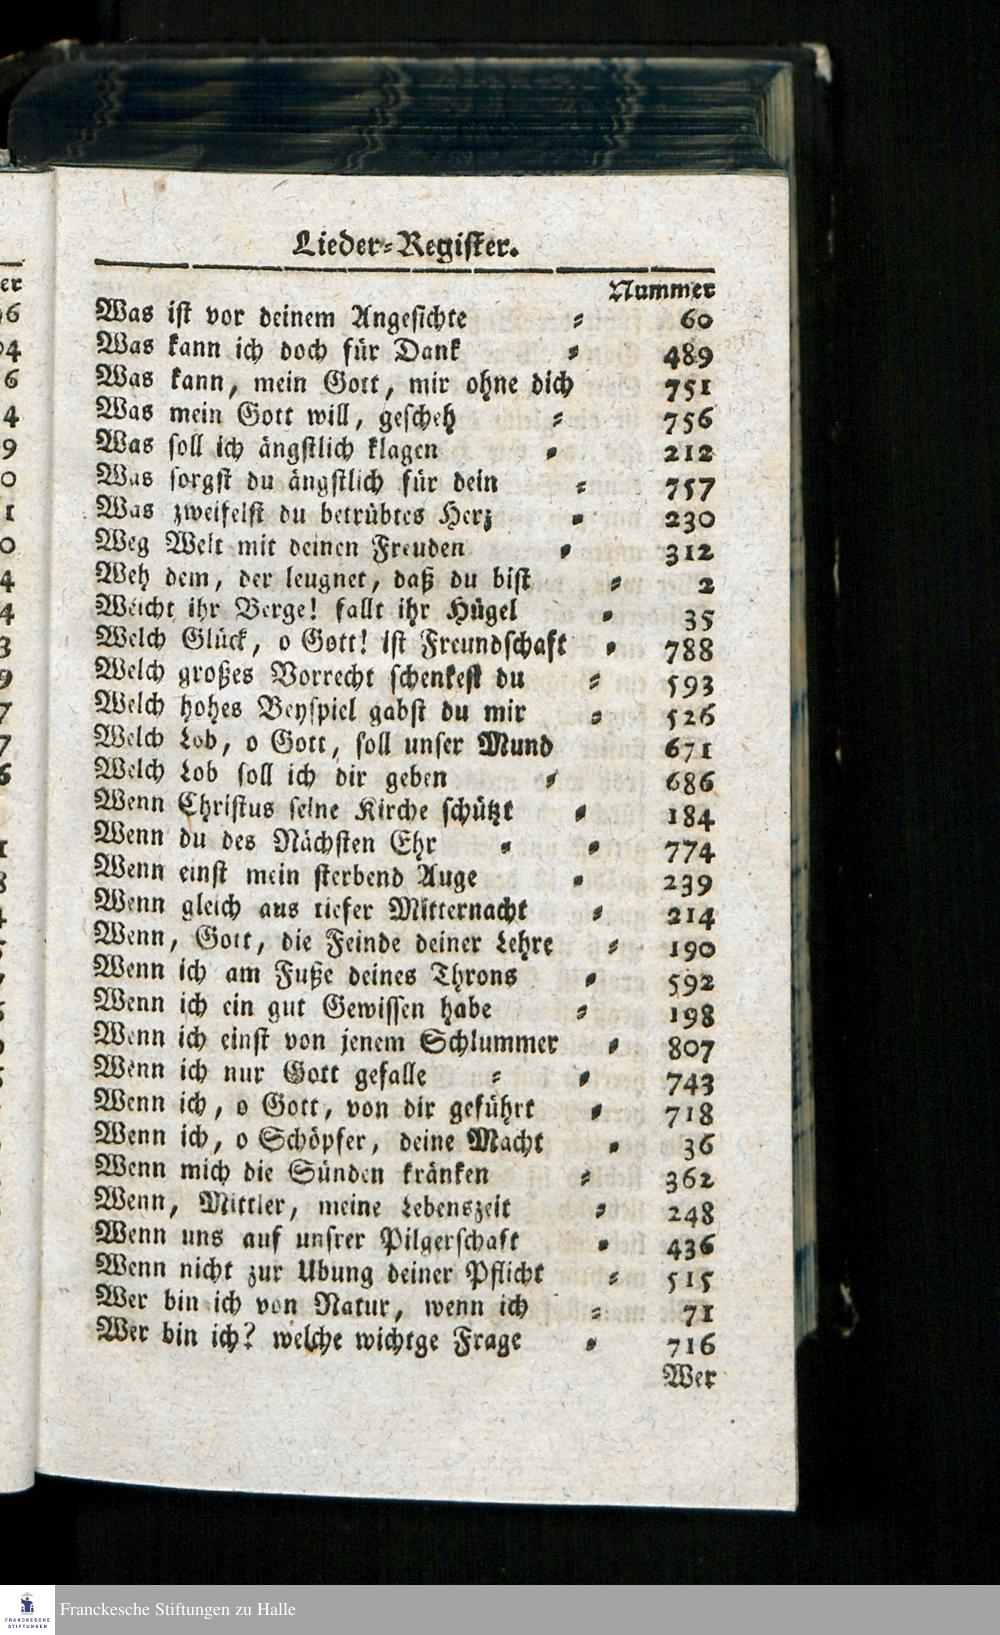 Lieder-Register.
Nummer
Was ist vor deinem Angesichte = 60
Was kann ich doch für Dank = 489
Was kann, mein Gott, mir ohne dich 751
Was mein Gott will, gescheh = 756
Was soll ich ängstlich klagen = 212
Was sorgst du ängstlich für dein = 757
Was zweifelst du betrübtes Herz = 230
Weg Welt mit deinen Freuden = 312
Weh dem, der leugnet, daß du bist = 2
Weicht ihr Berge! fallt ihr Hügel = 35
Welch Glück, o Gott! ist Freundschaft = 788
Welch großes Vorrecht schenkest du = 593
Welch hohes Beyspiel gabst du mir = 526
Welch Lob, o Gott, soll unser Mund 671
Welch Lob soll ich dir geben = 686
Wenn Christus seine Kirche schützt = 184
Wenn du des Nächsten Ehr = = 774
Wenn einst mein sterbend Auge = 239
Wenn gleich aus tiefer Mitternacht = 214
Wenn, Gott, die Feinde deiner Lehre = 190
Wenn ich am Fuße deines Throns = 592
Wenn ich ein gut Gewissen habe = 198
Wenn ich einst von jenem Schlummer = 807
Wenn ich nur Gott gefalle = = 743
Wenn ich, o Gott, von dir geführt = 718
Wenn ich, o Schöpfer, deine Macht = 36
Wenn mich die Sünden kränken = 362
Wenn, Mittler, meine Lebenszeit = 248
Wenn uns auf unsrer Pilgerschaft = 436
Wenn nicht zur Ubung deiner Pflicht = 515
Wer bin ich von Natur, wenn ich = 71
Wer bin ich? welche wichtge Frage = 716
Wer
FRANCKESCHE STIFTUNGEN
Franckesche Stiftungen zu Halle